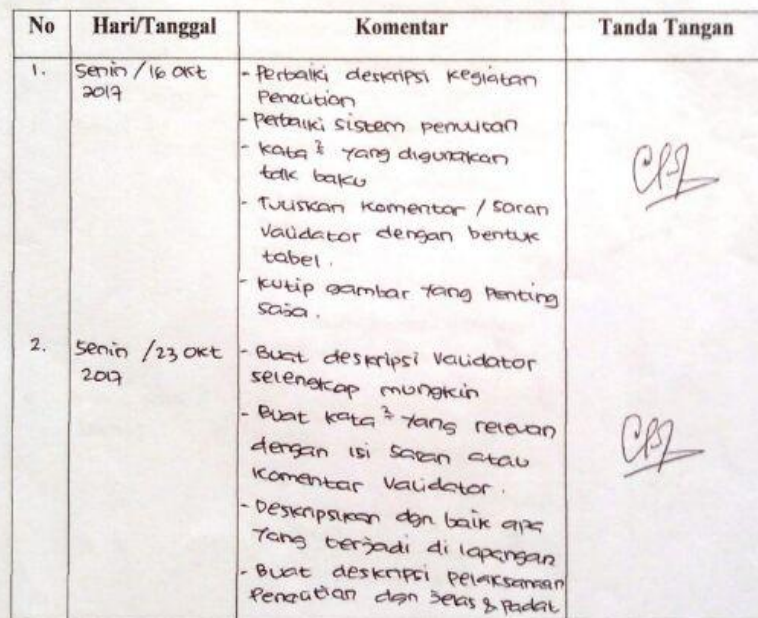 No Hari/Tanggal Komentar Tanda Tangan
1. Senin / 16 Okt - Perbaiki deskripsi kegiatan
2017 Penelitian
- Perbaiki sistem penulisan
- Kata² yang digunakan
tdk baku
- Tuliskan komentar / saran
Validator dengan bentuk
tabel.
- Kutip gambar yang penting
saja.
2. Senin / 23 Okt - Buat deskripsi Validator
2017 selengkap mungkin
- Buat kata² yang relevan
dengan isi saran atau
komentar Validator.
- Deskripsikan dgn baik apa
yang terjadi di lapangan
- Buat deskripsi pelaksanaan
Penelitian dgn jelas & padat